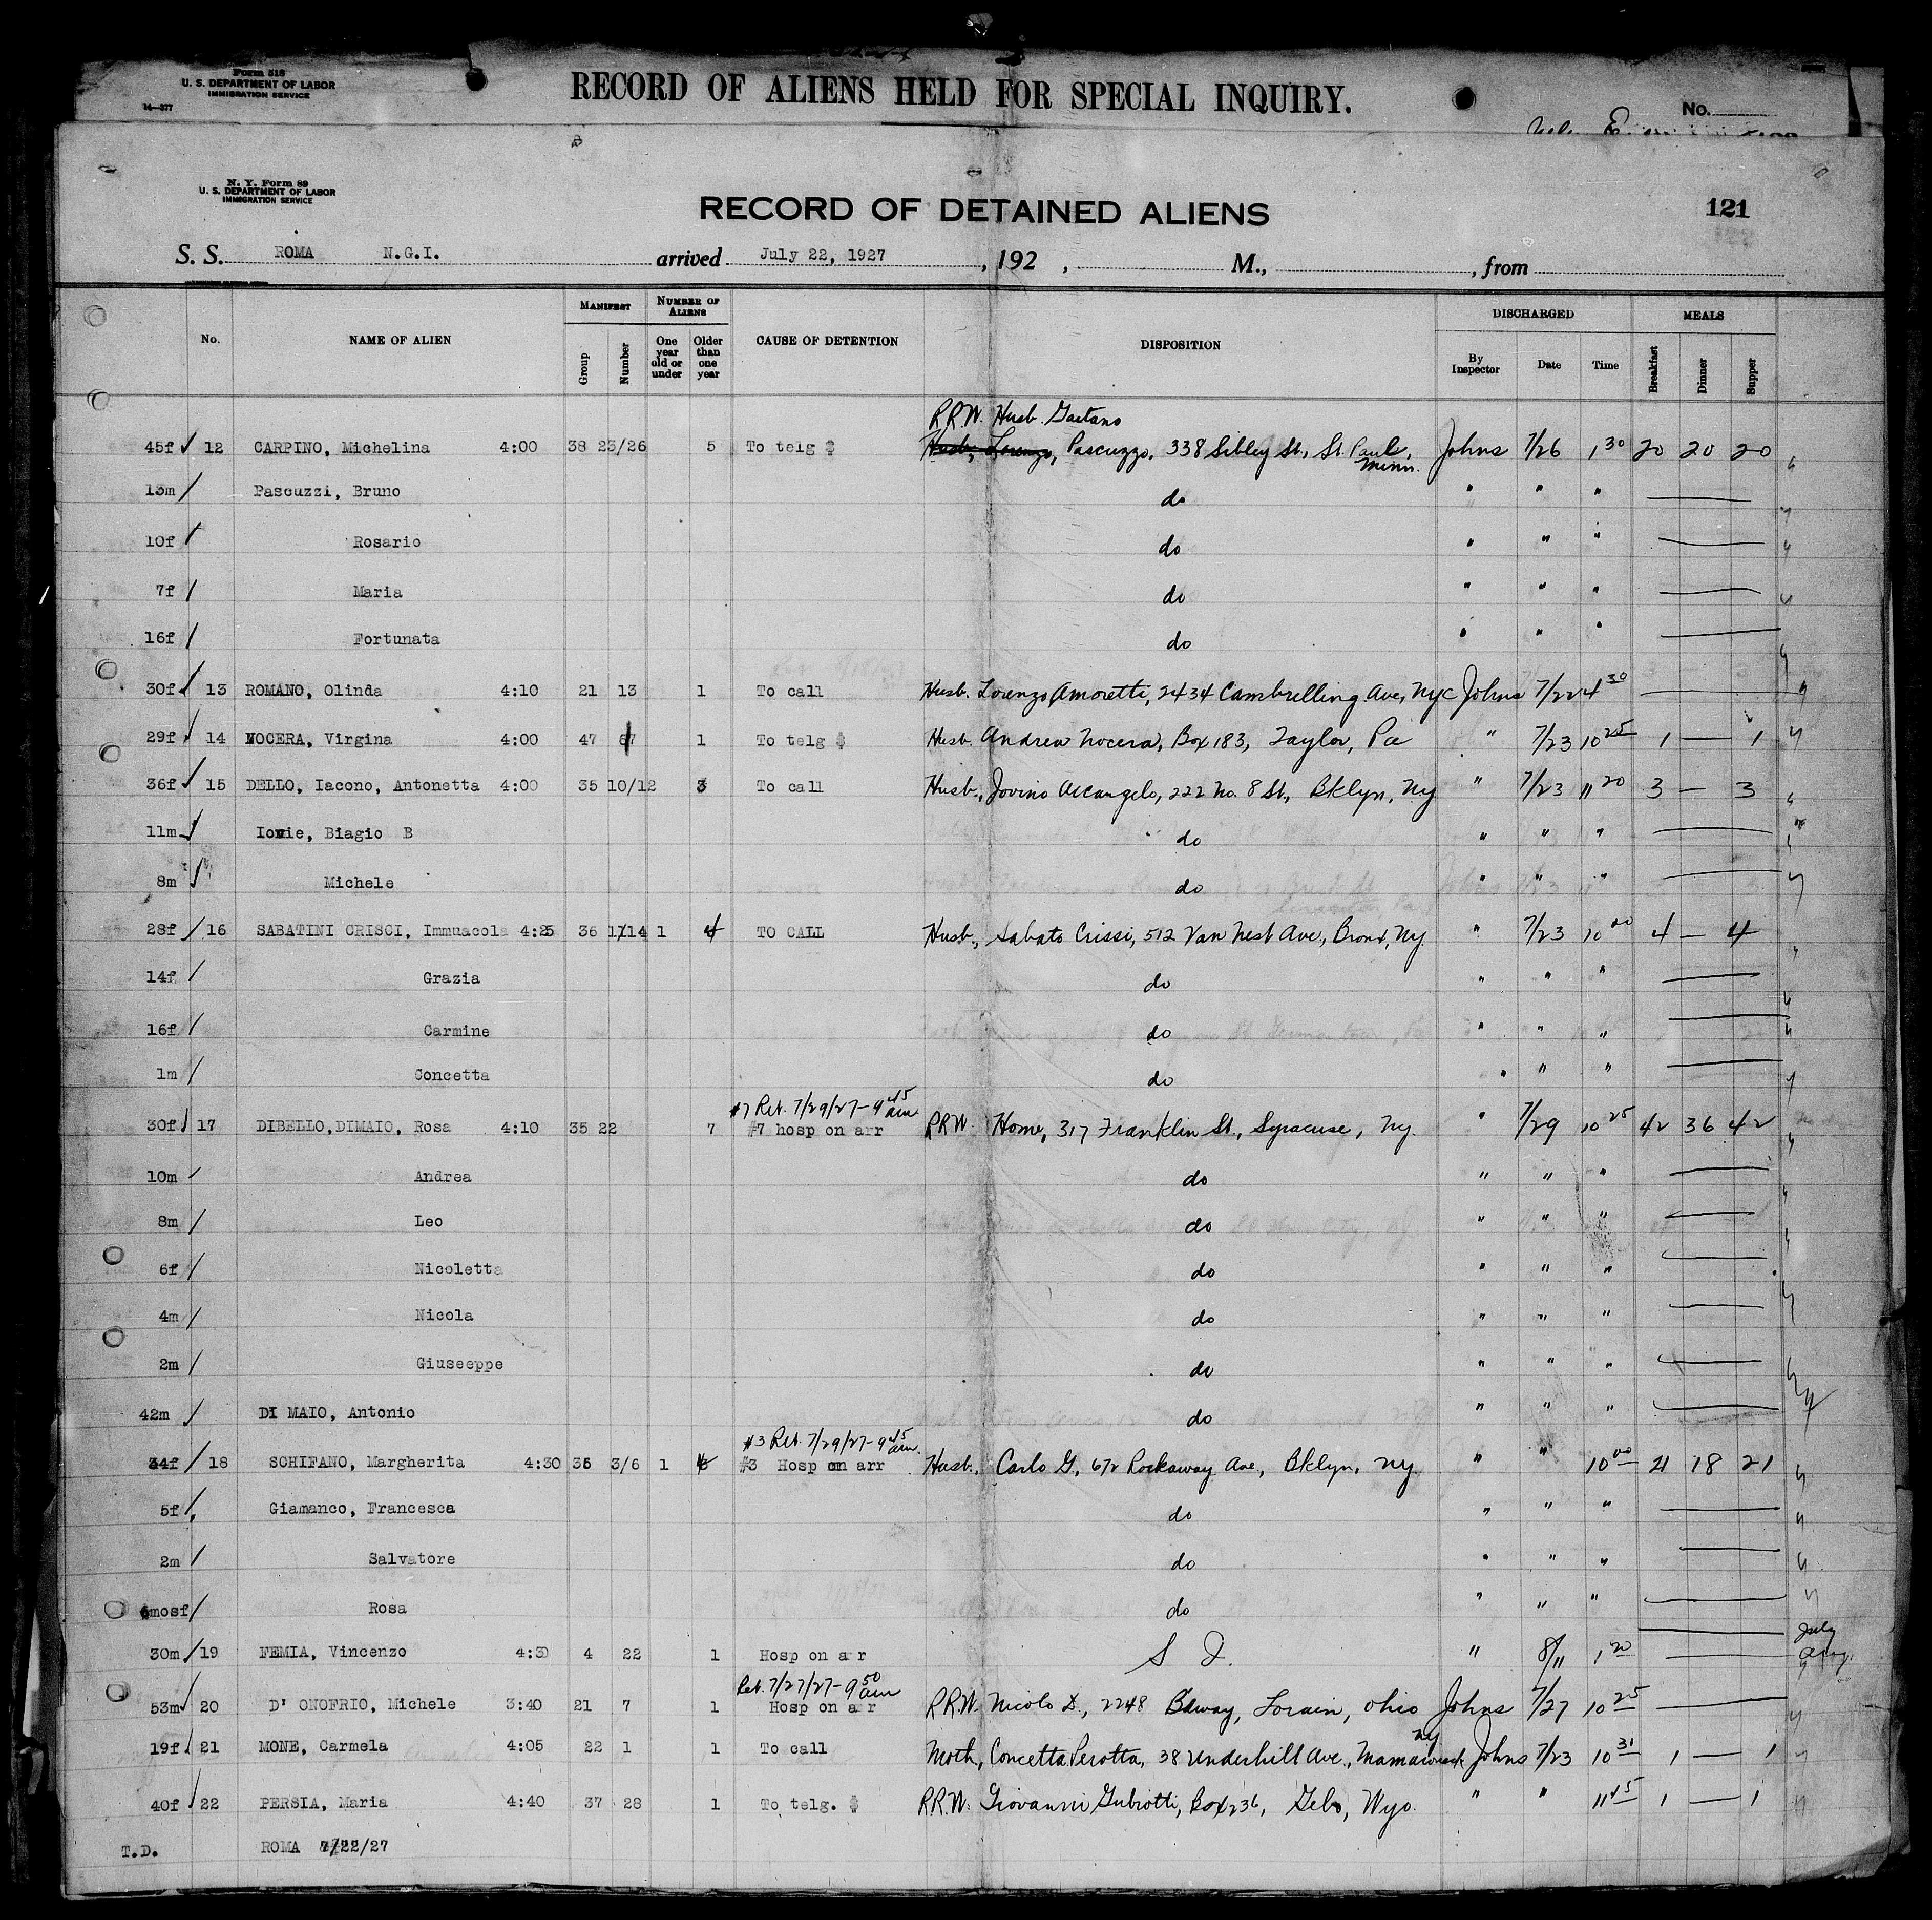 Form 518
U. S. DEPARTMENT OF LABOR
IMMIGRATION SERVICE
14—377
RECORD OF ALIENS HELD FOR SPECIAL INQUIRY.
No.
N. Y. Form 89
U. S. DEPARTMENT OF LABOR
IMMIGRATION SERVICE
RECORD OF DETAINED ALIENS
121
S. S. ROMA N.G.I. arrived July 22, 1927, 192 , M., , from
No. NAME OF ALIEN MANIFEST Group Number NUMBER OF ALIENS One year old or under Older than one year CAUSE OF DETENTION DISPOSITION DISCHARGED By Inspector Date Time MEALS Breakfast Dinner Supper
R.R.W. Husb. Gaetano
45f 12 CARPINO, Michelina 4:00 38 23/26 5 To telg $ Husb, Lorenzo, Pascuzzo, 338 Sibley St., St. Paul, Minn. Johns 7/26 1 30 20 20 20
13m Pascuzzi, Bruno do " " "
10f Rosario do " " "
7f Maria do " " "
16f Fortunata do " " "
30f 13 ROMANO, Olinda 4:10 21 13 1 To call Husb. Lorenzo Amoretti, 2434 Cambrelling Ave, NYC Johns 7/22 4 30
29f 14 NOCERA, Virgina 4:00 47 67 1 To telg $ Husb. Andrea Nocera, Box 183, Taylor, Pa " 7/23 10 25 1 — 1
36f 15 DELLO, Iacono, Antonetta 4:00 35 10/12 3 To call Husb., Jovino Arcangelo, 222 No. 8 St., Bklyn, NY " 7/23 11 20 3 — 3
11m Iovie, Biagio B do " " "
8m Michele do " " "
28f 16 SABATINI CRISCI, Immuacola 4:25 36 11/14 1 4 TO CALL Husb., Sabato Crissi, 512 Van Nest Ave., Bronx, NY. " 7/23 10 00 4 — 4
14f Grazia do " " "
16f Carmine do " " "
1m Concetta do " " "
#7 Ret. 7/29/27-9 45 am
30f 17 DIBELLO, DIMAIO, Rosa 4:10 35 22 7 #7 hosp on arr RRW. Home, 317 Franklin St., Syracuse, NY. " 7/29 10 25 42 36 42
10m Andrea do " " "
8m Leo do " " "
6f Nicoletta do " " "
4m Nicola do " " "
2m Giuseeppe do " " "
42m DI MAIO, Antonio do " " "
#3 Ret. 7/29/27-9 45 am.
34f 18 SCHIFANO, Margherita 4:30 36 3/6 1 #3 Hosp on arr Husb., Carlo G, 672 Rockaway Ave., Bklyn, NY " " 10 00 21 18 21
5f Giamanco, Francesca do " " "
2m Salvatore do " " "
6mosf Rosa do " " "
30m 19 FEMIA, Vincenzo 4:30 4 22 1 Hosp on arr S I. " 8/11 1 20 July Aug.
Ret. 7/27/27-9 50 am
53m 20 D' ONOFRIO, Michele 3:40 21 7 1 Hosp on arr R.R.W. Nicolo D., 2248 Bdway, Lorain, Ohio Johns 7/27 10 25
19f 21 MONE, Carmela 4:05 22 1 1 To call Moth, Concetta Perotta, 38 Underhill Ave., Mamaroneck NY Johns 7/23 10 31 1 — 1
40f 22 PERSIA, Maria 4:40 37 28 1 To telg. $ R.R.W. Giovanni Gubiotti, Box 236, Gebo, Wyo. " " 11 45 1 — 1
T.D. ROMA 7/22/27